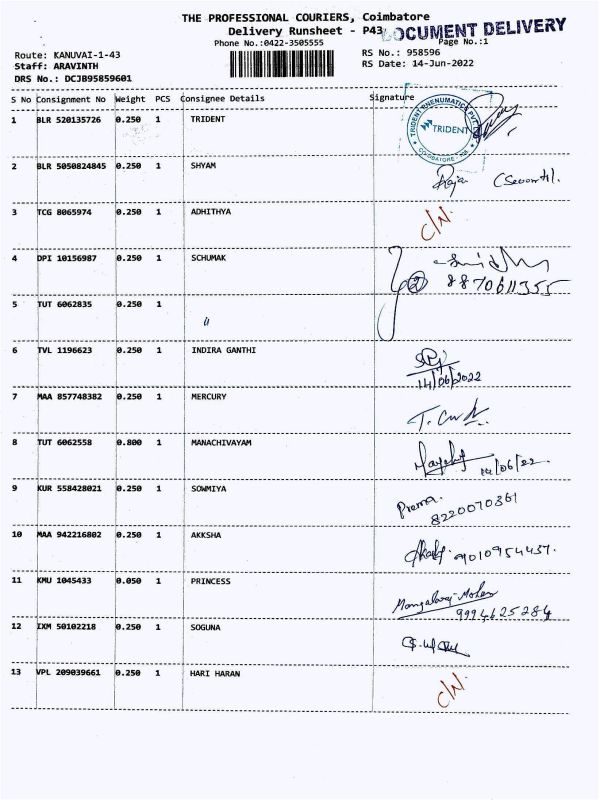 THE PROFESSIONAL COURIERS, Coimbatore
Delivery Runsheet - P43
DOCUMENT DELIVERY
Phone No.:0422-3505555
Page No.:1
Route: KANUVAI-1-43
RS No.: 958596
Staff: ARAVINTH
RS Date: 14-Jun-2022
DRS No.: DCJB95859601
S No Consignment No Weight PCS Consignee Details Signature
1 BLR 520135726 0.250 1 TRIDENT
TRIDENT PNEUMATICS PVT
TRIDENT
COIMBATORE
2 BLR 5050824845 0.250 1 SHYAM Raja (Security).
3 TCG 8065974 0.250 1 ADHITHYA C/N.
4 DPI 10156987 0.250 1 SCHUMAK
2 8870611355
5 TUT 6062835 0.250 1 "
6 TVL 1196623 0.250 1 INDIRA GANTHI
14/06/2022
7 MAA 857748382 0.250 1 MERCURY
8 TUT 6062558 0.800 1 MANACHIVAYAM
14/06/22
9 KUR 558428021 0.250 1 SOWMIYA Prema.
8220070361
10 MAA 942216802 0.250 1 AKKSHA 9010954437.
11 KMU 1045433 0.050 1 PRINCESS
9994625284
12 IXM 50102218 0.250 1 SOGUNA
13 VPL 209039661 0.250 1 HARI HARAN C/N.